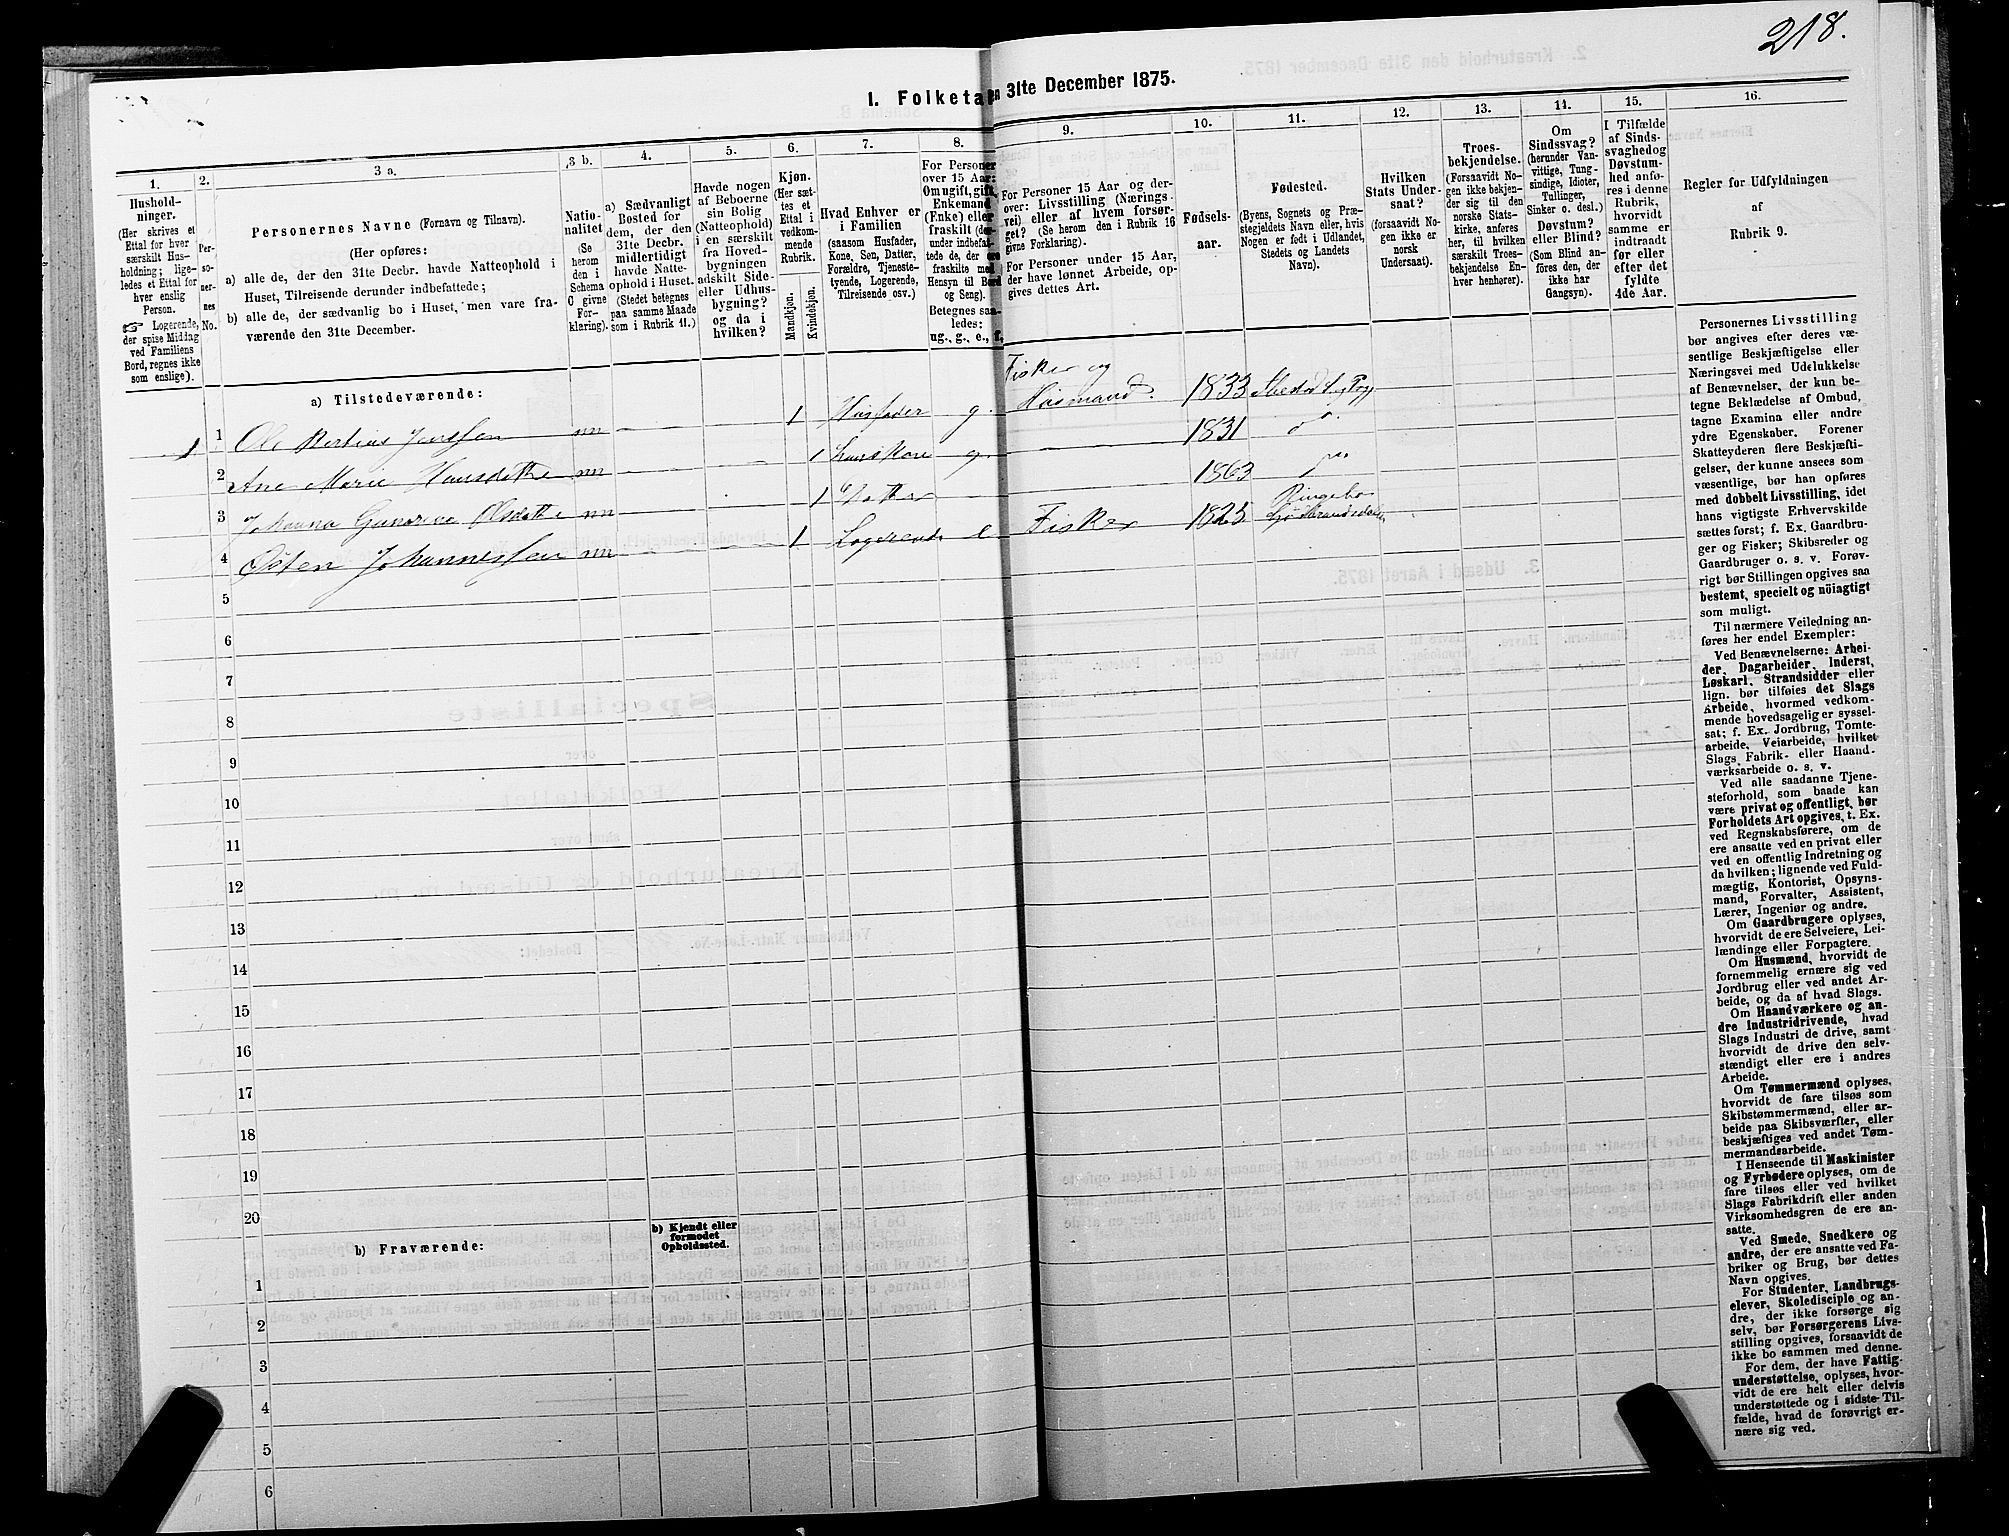 218.
I. Folketal den 31te December 1875.
1.
Hushold-
ninger.
(Her skrives et
Ettal for hver
særskilt Hus-
holdning; lige-
ledes et Ettal for
hver enslig
Person.
☞ Logerende,
der spise Middag
ved Familiens
Bord, regnes ikke
som enslige).
2.
Per-
so-
ner-
nes
No.
3 a.
Personernes Navne (Fornavn og Tilnavn).
(Her opføres:
a) alle de, der den 31te Decbr. havde Natteophold i
Huset, Tilreisende derunder indbefattede;
b) alle de, der sædvanlig bo i Huset, men vare fra-
værende den 31te December.
3 b.
Natio-
nalitet
(Se
herom
den i
Schema
C givne
For-
klaring).
4.
a) Sædvanligt
Bosted for
dem, der den
31te Decbr.
midlertidigt
havde Natte-
ophold i Huset.
(Stedet betegnes
paa samme Maade
som i Rubrik 11.)
5.
Havde nogen
af Beboerne
sin Bolig
(Natteophold)
i en særskilt
fra Hoved-
bygningen
adskilt Side-
eller Udhus-
bygning?
og da i
hvilken?
6.
Kjøn.
(Her sæt-
tes et
Ettal i
vedkom-
mende
Rubrik.
Mandkjøn.
Kvindekjøn.
7.
Hvad Enhver er
i Familien
(saasom Husfader,
Kone, Søn, Datter,
Forældre, Tjeneste-
tyende, Logerende,
Tilreisende osv.)
8.
For Personer
over 15 Aar:
Om ugift, gift,
Enkemand
(Enke) eller
fraskilt (der-
under indbefat-
tede de, der ere
fraskilte med
Hensyn til Bord
og Seng).
Betegnes saa-
ledes:
ug., g., e., f.
9.
For Personer 15 Aar og der-
over: Livsstilling (Nærings-
vei) eller af hvem forsør-
get? (Se herom den i Rubrik 16
givne Forklaring).
For Personer under 15 Aar,
der have lønnet Arbeide, op-
gives dettes Art.
10.
Fødsels-
aar.
11.
Fødested.
(Byens, Sognets og Præ-
stegjeldets Navn eller, hvis
Nogen er født i Udlandet,
Stedets og Landets
Navn).
12.
Hvilken
Stats Under-
saat?
(forsaavidt No-
gen ikke er
norsk
Undersaat).
13.
Troes-
bekjendelse.
(Forsaavidt No-
gen ikke bekjen-
der sig til den
norske Stats-
kirke, anføres
her, til hvilken
særskilt Troes-
bekjendelse En-
hver henhører).
14.
Om
Sindssvag?
(herunder Van-
vittige, Tung-
sindige, Idioter,
Tullinger,
Sinker o. desl.)
Døvstum?
eller Blind?
(Som Blind an-
føres den, der
ikke har
Gangsyn).
15.
I Tilfælde
af Sinds-
svaghed og
Døvstum-
hed anfø-
res i denne
Rubrik,
hvorvidt
samme er
indtraadt
før eller
efter det
fyldte
4de Aar.
16.
Regler for Udfyldningen
af
Rubrik 9.
a) Tilstedeværende:
1 1 Ole Jenssen nn 1 Husfader g. Fisker og Husmand. 1833
2 Ane Marie Hansdatter nn 1 huuskone g. 1831 do
3 Johanna Olsdatter nn 1 Datter 1863 do
4 Østen Johannessen nn 1 Logerende e Fisker 1825 Ringebo Gudbrandsdalen
5
6
7
8
9
10
11
12
13
14
15
16
17
18
19
20
b) Fraværende:
b) Kjendt eller
formodet
Opholdssted.
1
2
3
4
5
6
Personernes Livsstilling
bør angives efter deres væ-
sentlige Beskjæftigelse eller
Næringsvei med Udelukkelse
af Benævnelser, der kun be-
tegne Beklædelse af Ombud,
tagne Examina eller andre
ydre Egenskaber. Forener
Skatteyderen flere Beskjæfti-
gelser, der kunne ansees som
væsentlige, bør han opføres
med dobbelt Livsstilling, idet
hans vigtigste Erhvervskilde
sættes først; f. Ex. Gaardbru-
ger og Fisker; Skibsreder og
Gaardbruger o. s. v. Forøv-
rigt bør Stillingen opgives saa
bestemt, specielt og nöiagtigt
som muligt.
Til nærmere Veiledning an-
føres her endel Exempler:
Ved Benævnelserne: Arbei-
der, Dagarbeider, Inderst,
Løskarl, Strandsidder eller
lign. bør tilføies det Slags
Arbeide, hvormed vedkom-
mende hovedsagelig er syssel-
sat; f. Ex. Jordbrug, Tomte-
arbeide, Veiarbeide, hvilket
Slags Fabrik- eller Haand-
værksarbeide o. s. v.
Ved alle saadanne Tjene-
steforhold, som baade kan
være privat og offentligt, bør
Forholdets Art opgives, t. Ex.
ved Regnskabsførere, om de
ere ansatte ved en privat eller
ved en offentlig Indretning og
da hvilken; lignende ved Fuld-
mægtig, Kontorist, Opsyns-
mand, Forvalter, Assistent,
Lærer, Ingeniør og andre.
Om Gaardbrugere oplyses,
hvorvidt de ere Selveiere, Lei-
lændinge eller Forpagtere.
Om Husmænd, hvorvidt de
fornemmelig ernære sig ved
Jordbrug eller ved andet Ar-
beide, og da af hvad Slags.
Om Haandværkere og an-
dre Industridrivende, hvad
Slags Industri de drive, samt
hvorvidt de drive den selv-
stændigt eller ere i andres
Arbeide.
Om Tømmermænd oplyses,
hvorvidt de fare tilsøs som
Skibstømmermænd, eller ar-
beide paa Skibsværfter, eller
beskjæftiges ved andet Tøm-
mermandsarbeide.
I Henseende til Maskinister
og Fyrbødere oplyses, om de
fare tilsøs eller ved hvilket
Slags Fabrikdrift eller anden
Virksomhedsgren de ere an-
satte.
Ved Smede, Snedkere og
andre, der ere ansatte ved Fa-
briker og Brug, bør dettes
Navn opgives.
For Studenter, Landbrugs-
elever, Skoledisciple og an-
dre, der ikke forsørge sig
selv, bør Forsørgerens Livs-
stilling opgives, forsaavidt de
ikke bo sammen med denne.
For dem, der have Fattig-
understøttelse, oplyses, hvor-
vidt de ere helt eller delvis
understøttede og i sidste Til-
fælde, hvad de forøvrigt er-
nære sig ved.